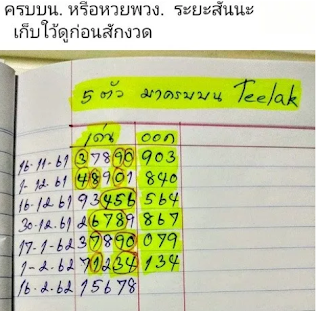 ครบบน. หรือหวยพวง. ระยะสั้นนะ
เก็บไว้ดูก่อนสักงวด
5 ตัว มาครบบน Teelak
เด่น ออก
16-11-61 37890 903
1-12-61 48901 840
16-12-61 93456 564
30-12-61 26789 867
17-1-62 37890 079
1-2-62 71234 134
16-2-62 15678